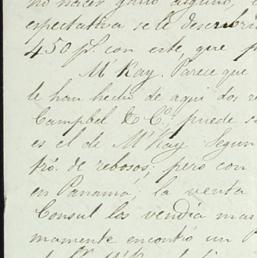 no hacer
espectativa se le descubri
450 ps. con este, que p
Mc Kay. Parece que
le han hecho de aqui dos re
Campbel & Co. puede s
es el de Mc Kay. Segun
tró. de rebosos; pero con
en Panamá la venta
Consul los vendia mas
mamente encontró un P